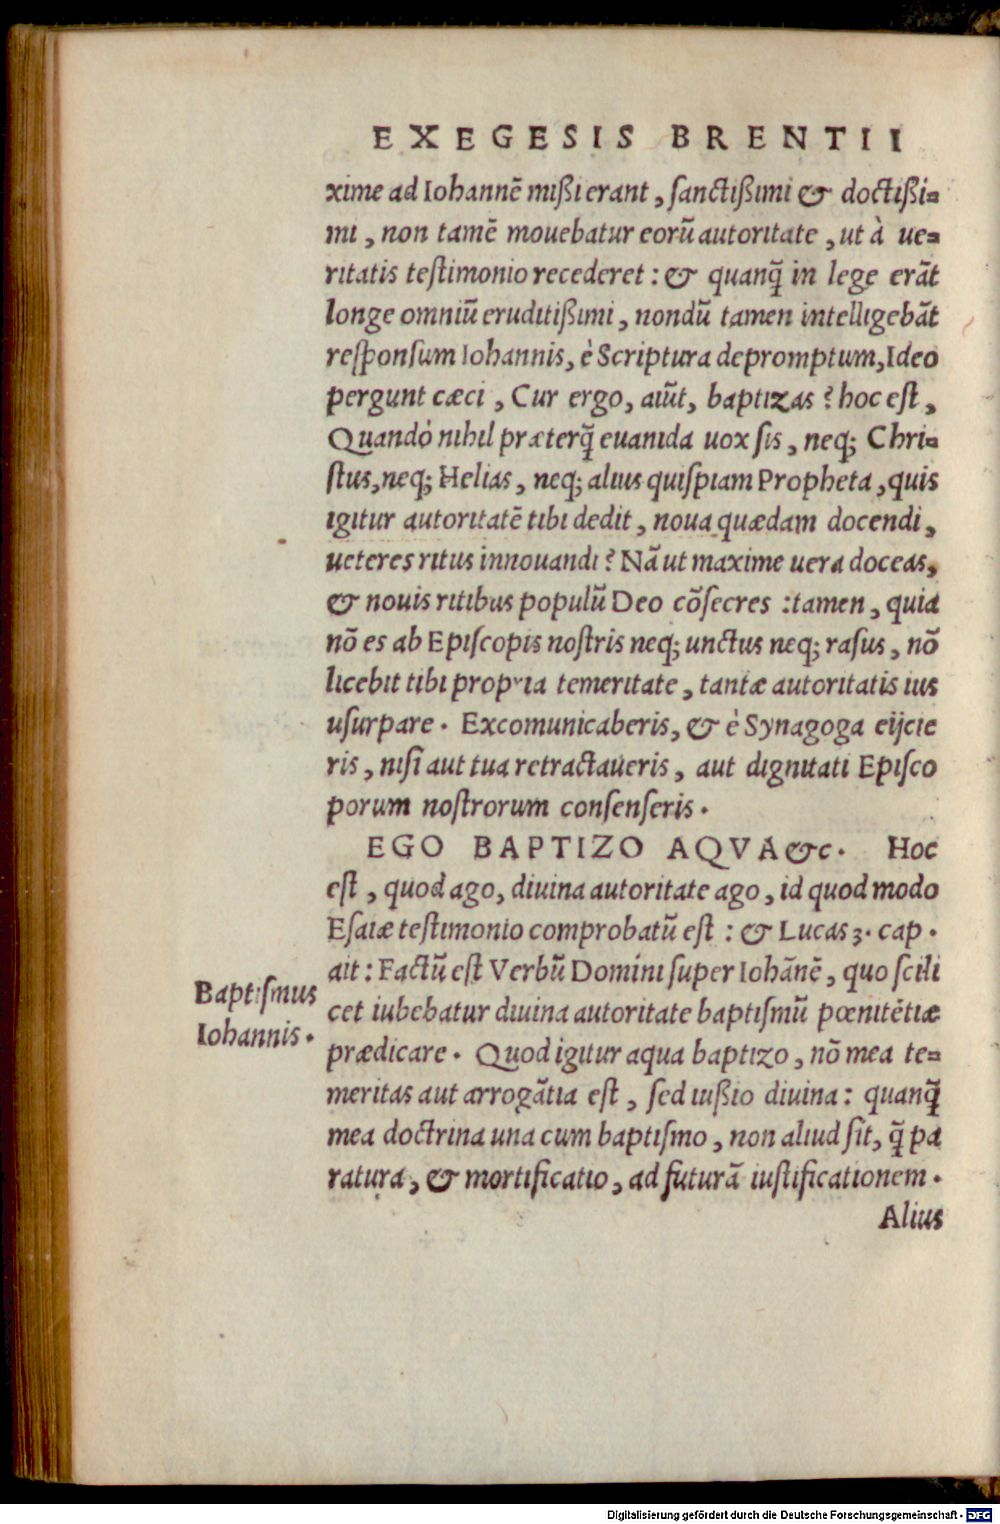 EXEGESIS BRENTII
xime ad Iohannẽ mißi erant, ſanctißimi & doctißi=
mi, non tamẽ mouebatur eorũ autoritate, ut à ue=
ritatis teſtimonio recederet: & quanq̃ in lege erãt
longe omniũ eruditißimi, nondũ tamen intelligebãt
reſponſum Iohannis, è Scriptura depromptum, Ideo
pergunt cæci, Cur ergo, aiũt, baptizas? hoc eſt,
Quandò nihil præterq̃ euanida uox ſis, neq; Chri=
ſtus, neq; Helias, neq; alius quiſpiam Propheta, quis
igitur autoritatẽ tibi dedit, noua quædam docendi,
ueteres ritus innouandi? Nã ut maxime uera doceas,
& nouis ritibus populũ Deo cõſecres: tamen, quia
nõ es ab Epiſcopis noſtris neq; unctus neq; raſus, nõ
licebit tibi propria temeritate, tantæ autoritatis ius
uſurpare. Excomunicaberis, & è Synagoga eijcie
ris, niſi aut tua retractaueris, aut dignitati Epiſco
porum noſtrorum conſenſeris.
EGO BAPTIZO AQVA &c. Hoc
eſt, quod ago, diuina autoritate ago, id quod modo
Eſaiæ teſtimonio comprobatũ eſt: & Lucas 3. cap.
ait: Factũ eſt Verbũ Domini ſuper Iohãnẽ, quo ſcili
Baptiſmus
Iohannis.
cet iubebatur diuina autoritate baptiſmũ pœnitẽtiæ
prædicare. Quod igitur aqua baptizo, nõ mea te=
meritas aut arrogãtia eſt, ſed iußio diuina: quanq̃
mea doctrina una cum baptiſmo, non aliud ſit, q̃ pa
ratura, & mortificatio, ad futurã iuſtificationem.
Alius
Digitalisierung gefördert durch die Deutsche Forschungsgemeinschaft - DFG